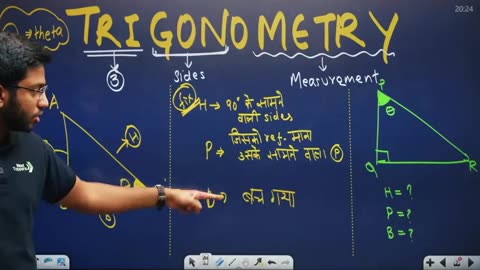 20:24
⇒theta
TRIGONOMETRY
③
Sides
Measurement
A
H
H → 90° के सामने
वाली sides
P → जिसको ref. माना
उसके सामने वाला (P)
→ बच गया
P
θ
Q
R
H = ?
P = ?
B = ?